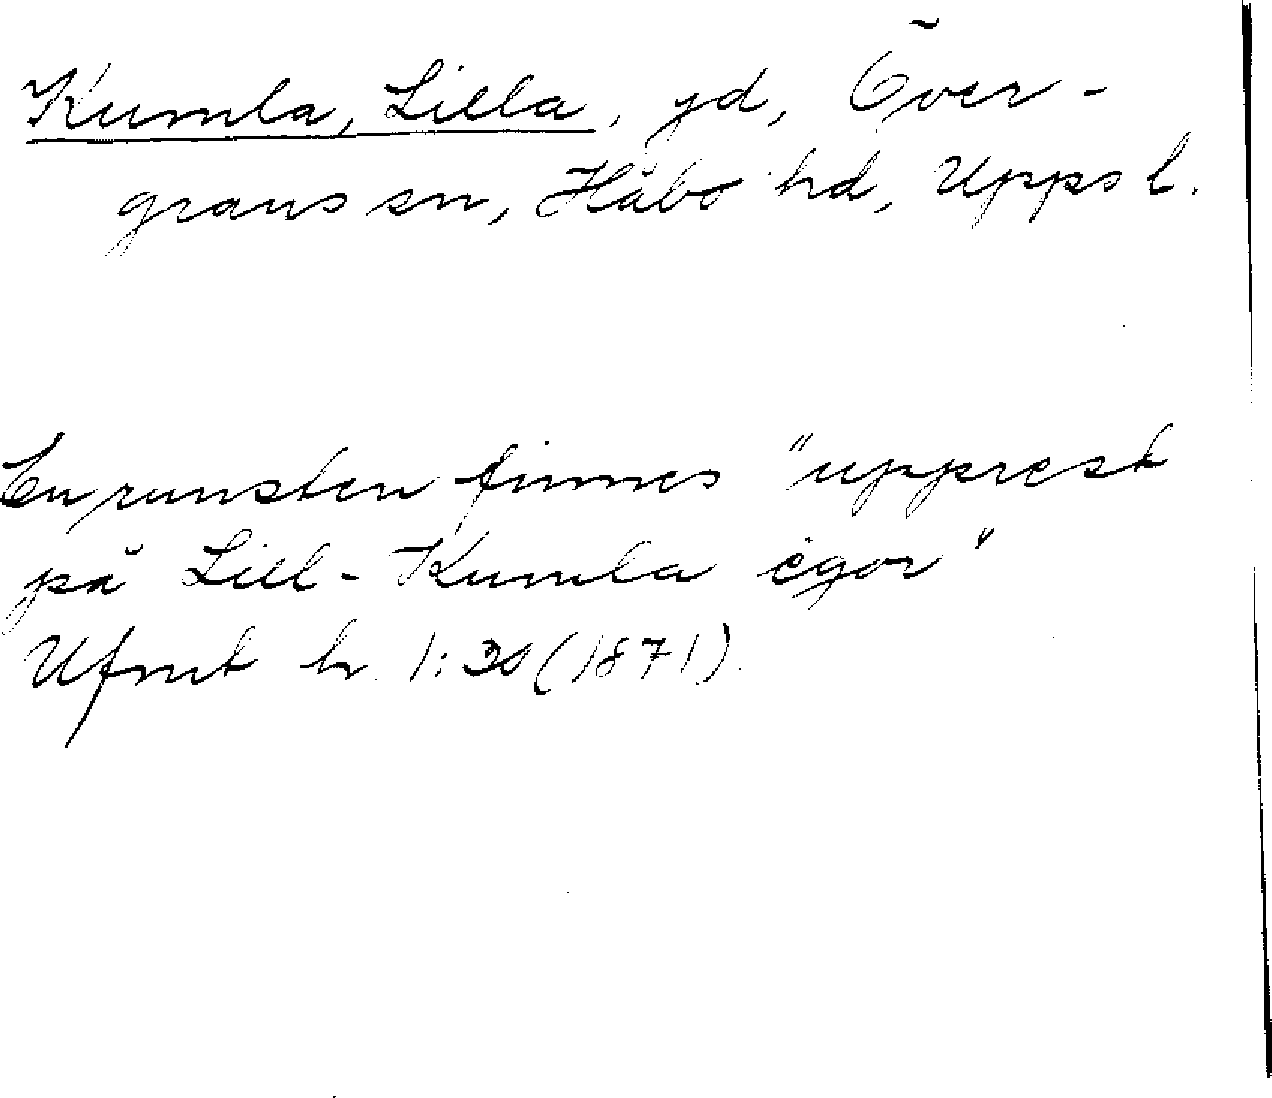 Kumla, Lilla, gd, Över-
grans sn, Håbo hd, Upps l.
En runsten finnes "upprest
på Lill-Kumla egor"
Ufmt h. 1: (1871).